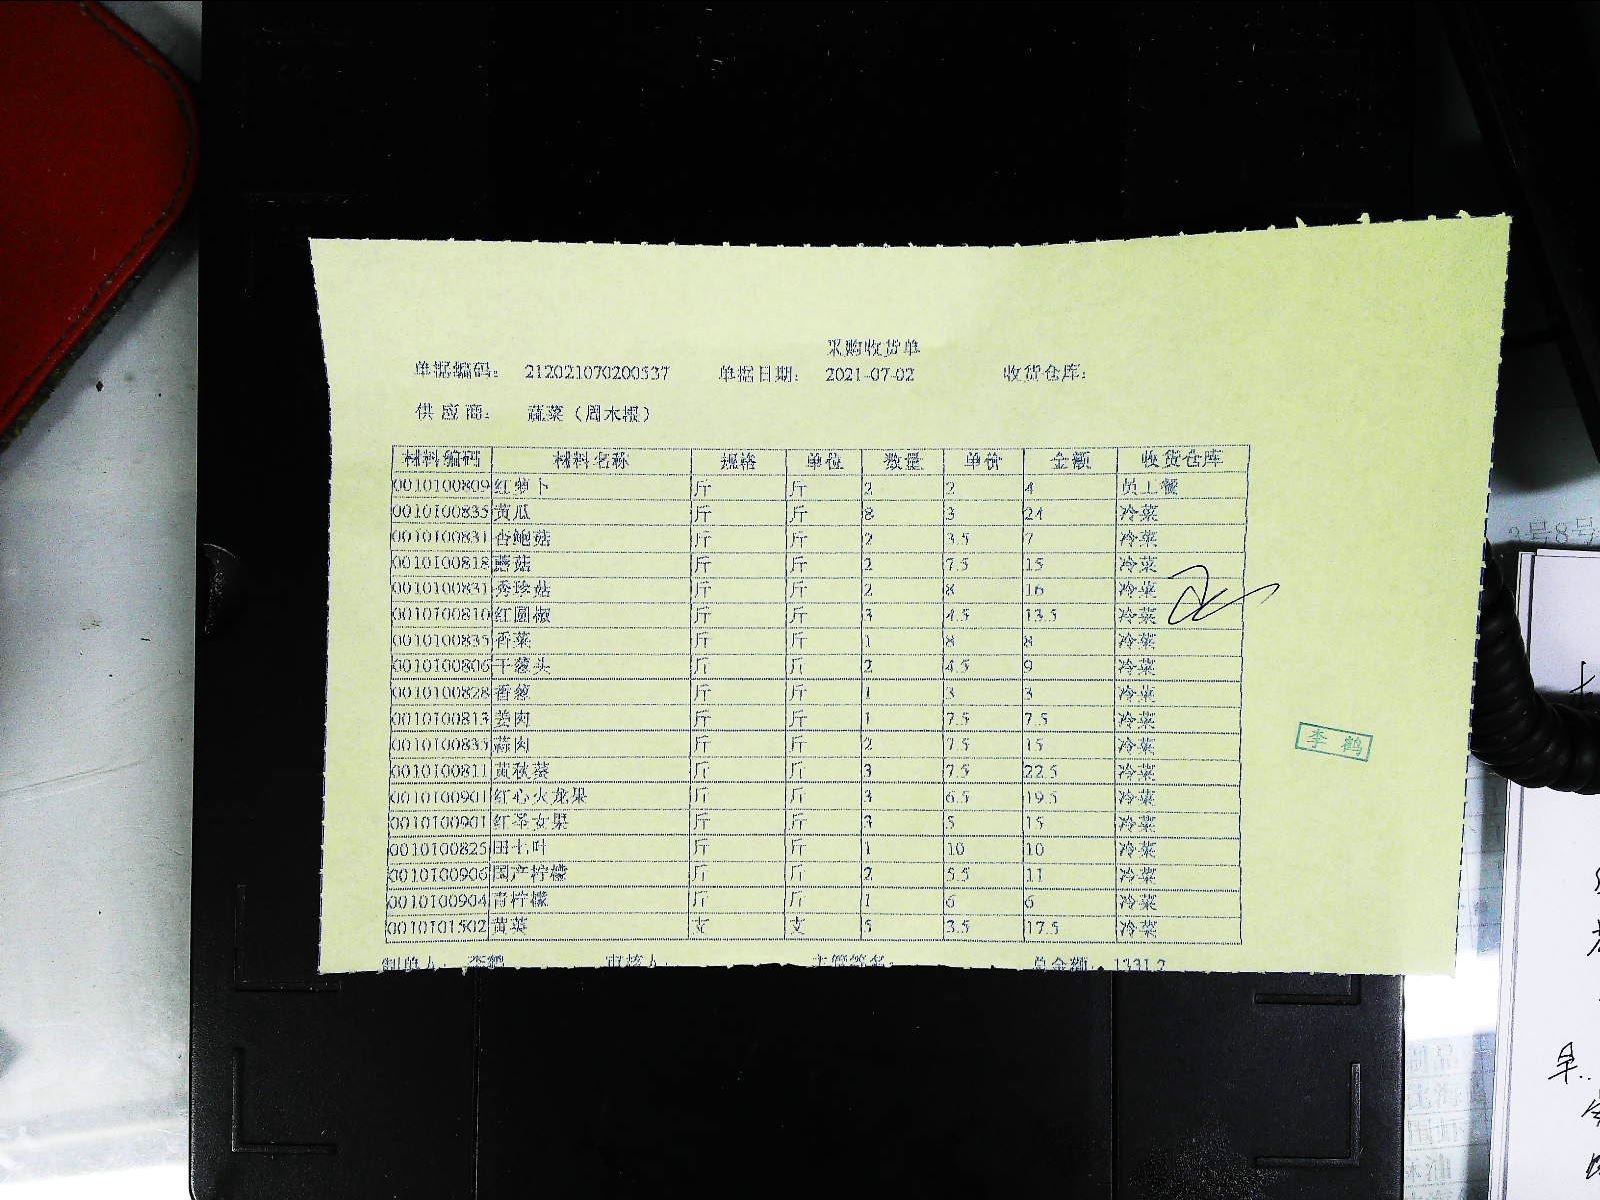 采购收货单
单据编码: 212021070200537 单据日期: 2021-07-02 收货仓库:
供应商: 蔬菜(周木根)
材料编码 材料名称 规格 单位 数量 单价 金额 收货仓库
0010100809 红萝卜 斤 斤 2 2 4 员工餐
0010100835 黄瓜 斤 斤 8 3 24 冷菜
0010100831 杏鲍菇 斤 斤 2 3.5 7 冷菜
0010100818 蘑菇 斤 斤 2 7.5 15 冷菜
0010100831 秀珍菇 斤 斤 2 8 16 冷菜
0010100810 红圆椒 斤 斤 3 4.5 13.5 冷菜
0010100835 香菜 斤 斤 1 8 8 冷菜
0010100806 干葱头 斤 斤 2 4.5 9 冷菜
0010100828 香葱 斤 斤 1 3 3 冷菜
0010100813 姜肉 斤 斤 1 7.5 7.5 冷菜
0010100835 蒜肉 斤 斤 2 7.5 15 冷菜
0010100811 黄秋葵 斤 斤 3 7.5 22.5 冷菜
0010100901 红心火龙果 斤 斤 3 6.5 19.5 冷菜
0010100901 红圣女果 斤 斤 3 5 15 冷菜
0010100825 田七叶 斤 斤 1 10 10 冷菜
0010100906 国产柠檬 斤 斤 2 5.5 11 冷菜
0010100904 青柠檬 斤 斤 1 6 6 冷菜
0010101502 黄英 支 支 5 3.5 17.5 冷菜
制单人: 李鹤 审核人: 主管签名: 总金额: 1331.2
李鹤